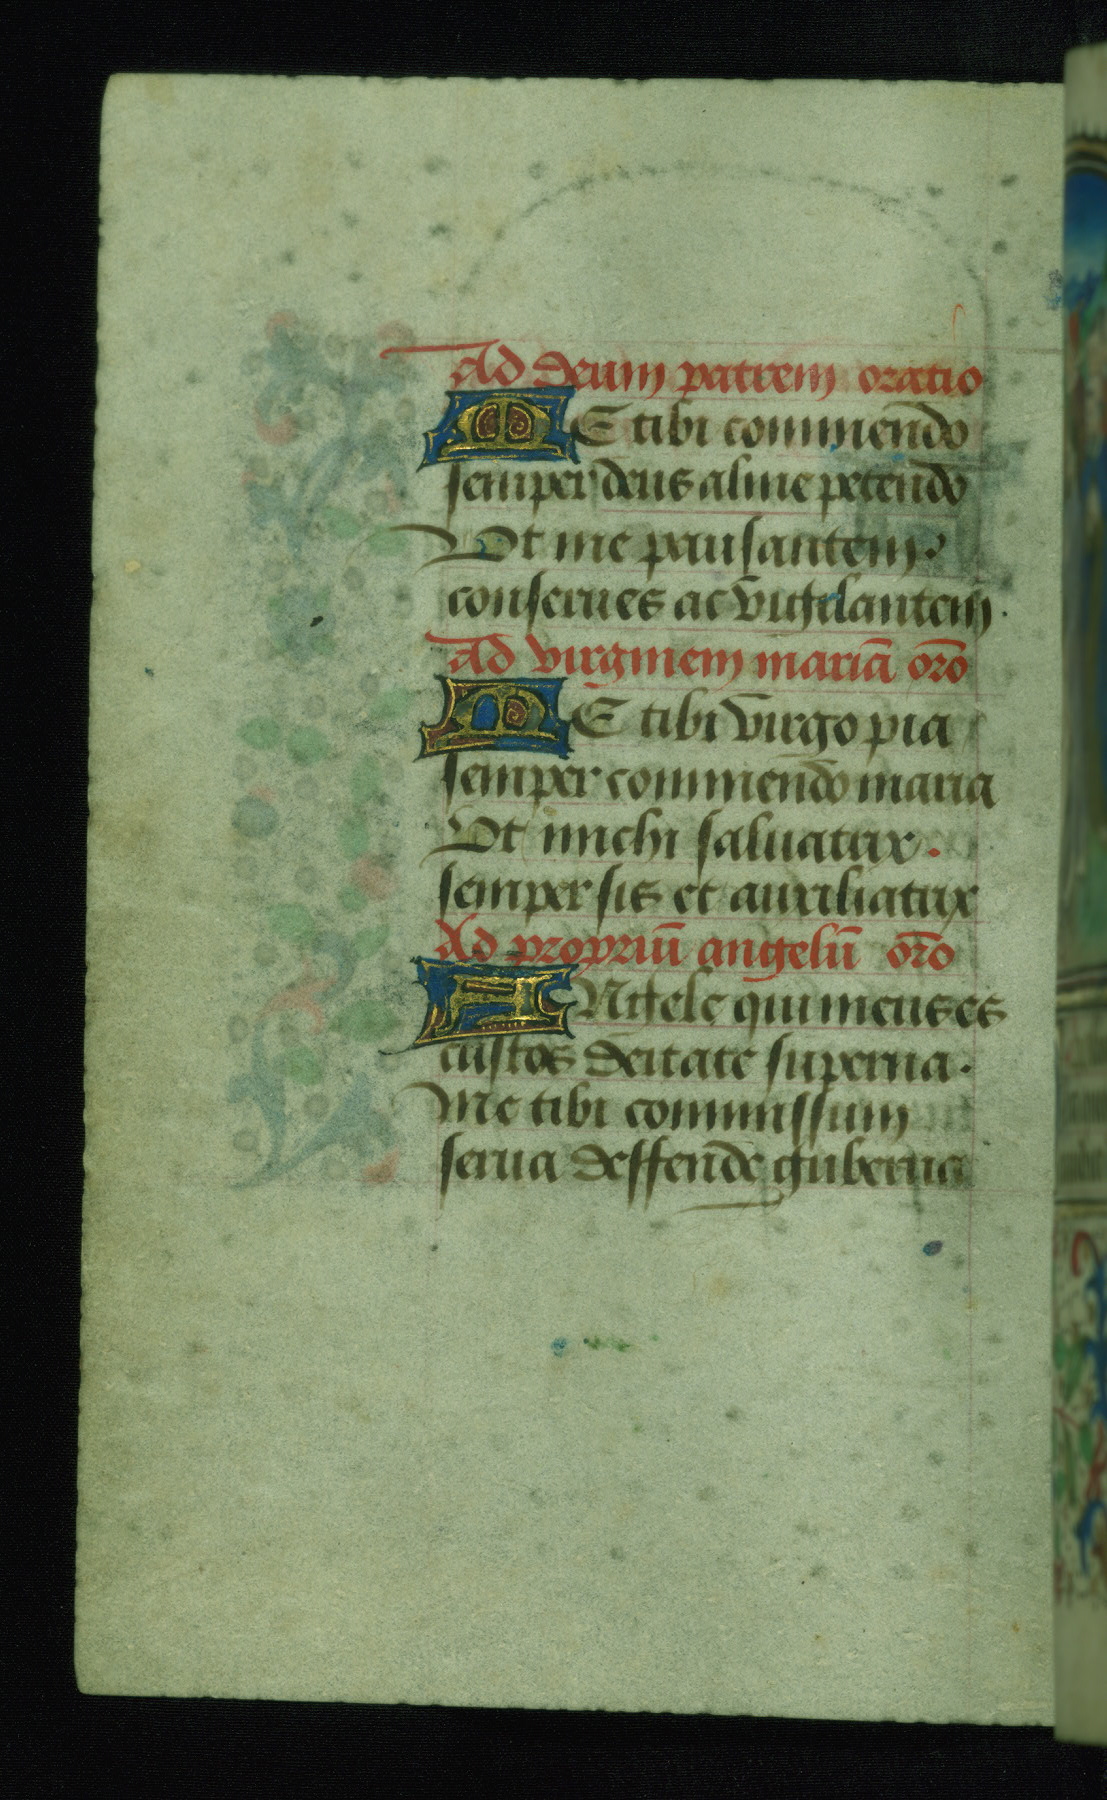 Ad deum patrem oratio
ME tibi commendo
semper deus alme petendo
Ut me pausantem
conserues ac vigilantem.
Ad virginem mariā or̄o
ME tibi virgo pia
semper commendo maria
Ut michi saluatrix.
semper sis et auxiliatrix
Ad propriū angelū or̄o
ANgele qui meus es
custos deitate superna.
Me tibi commissum
serua deffende guberna